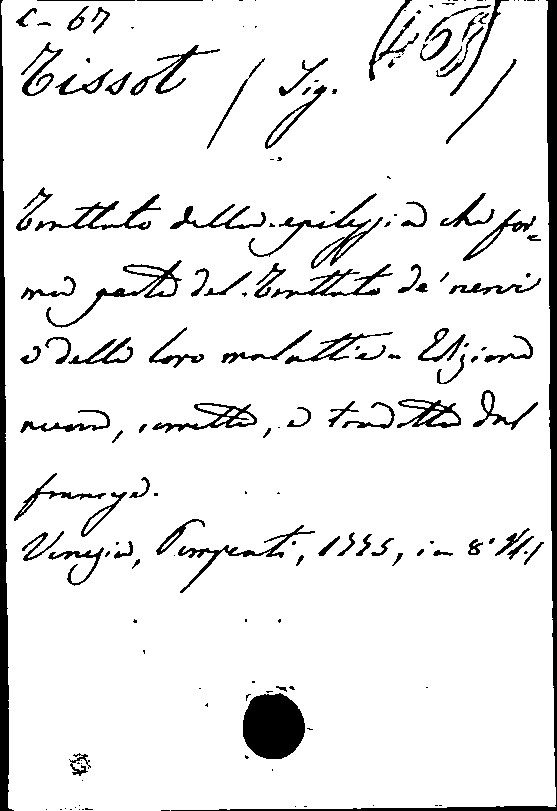 C - 67
(468)
Tissot (Sig. )
Trattato della epilessia che for=
ma parte del Trattato de' nervi
e delle loro malattie - Edizione
nuova, corretta, e tradotta dal
francese.
Venezia, Pompeati, 1775, in 8°